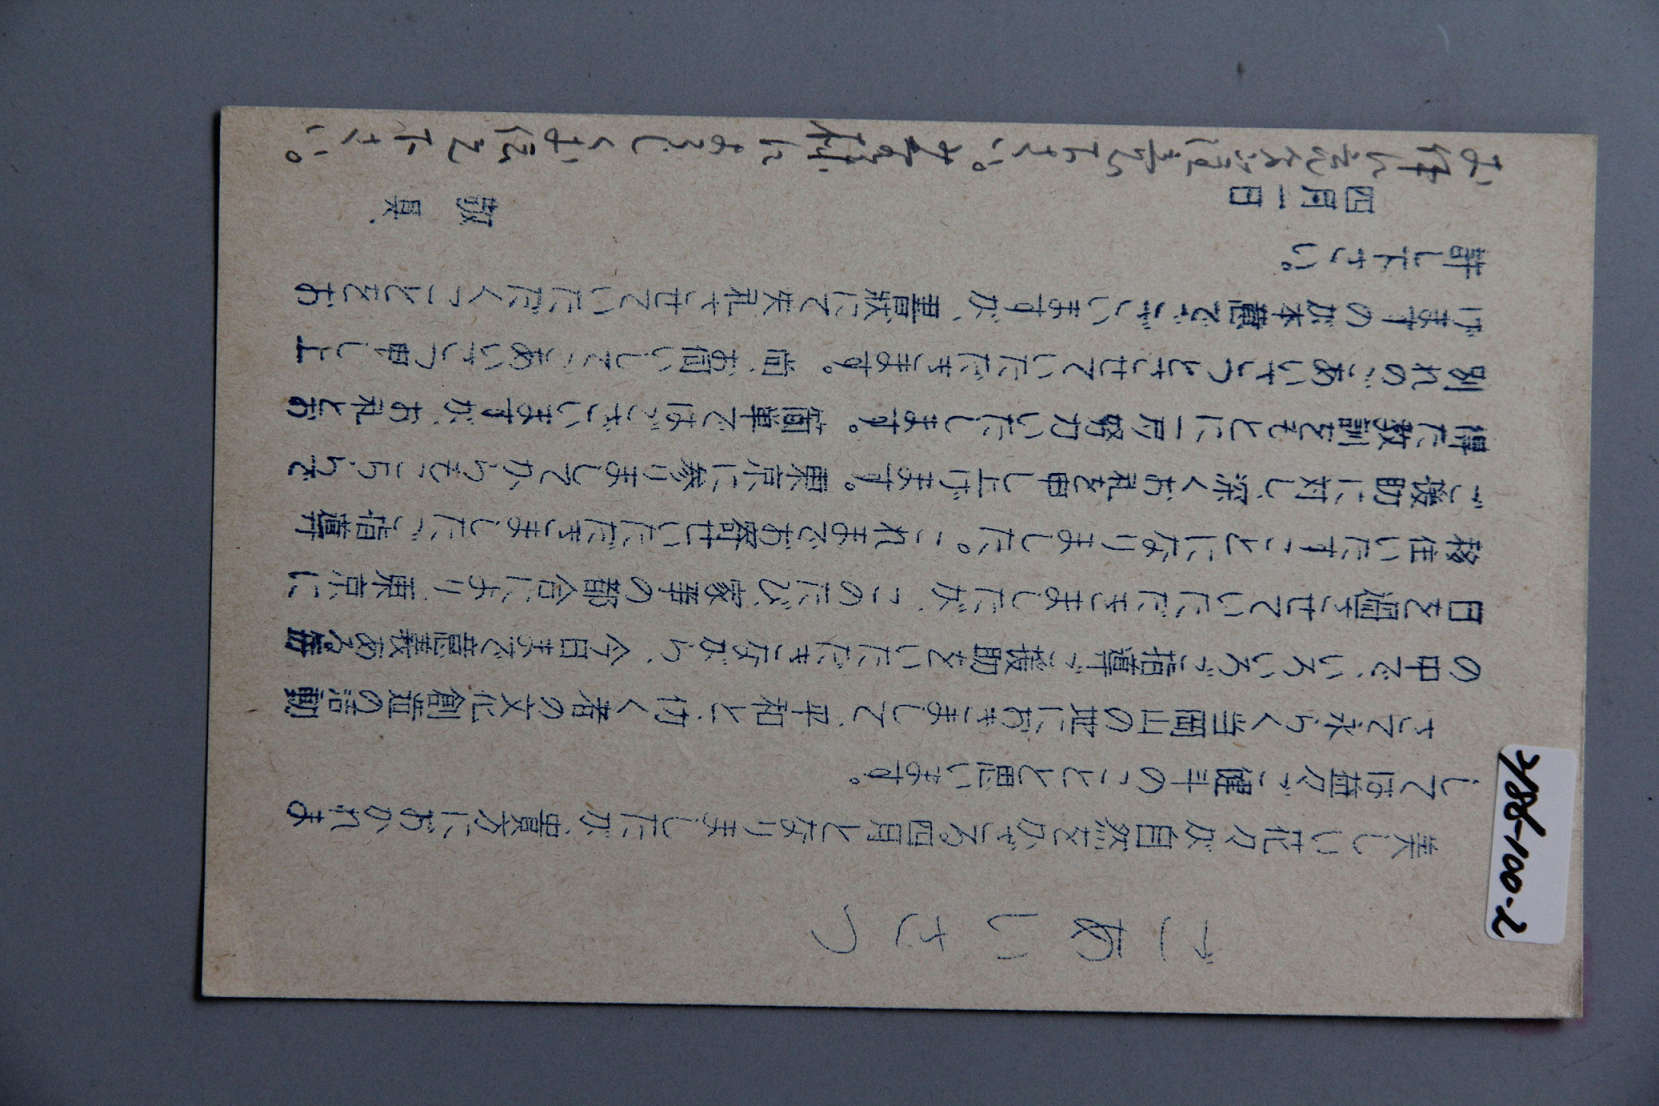 ごあいさつ
美しい花々が自然をかざる四月となりましたが、貴方におかれま
しては益々ご健斗のことと思います。
さて永らく当岡山の地におきまして、平和と、仂く者の文化創造の活動
の中で、いろいろご指導ご援助をいただきながら、今日まで意義ある毎
日を過させていただきましたが、このたび、家事の都合により、東京に
移住いたすことになりました。これまでお寄せいただきましたご指導
ご援助に対し、深くお礼を申し上げます。東京に参りましてからもこちらで
得た教訓をもとに一層努力いたします。簡単ではございますが、お礼とお
別れのごあいさつとさせていただきます。尚、お伺いしてごあいさつ申し上
げますのが本意でございますが、書状にて失礼させていただくことをお
許し下さい。
四月一日
敬具、
下さい。
によろしくお伝え下さい。
Y88-100-2